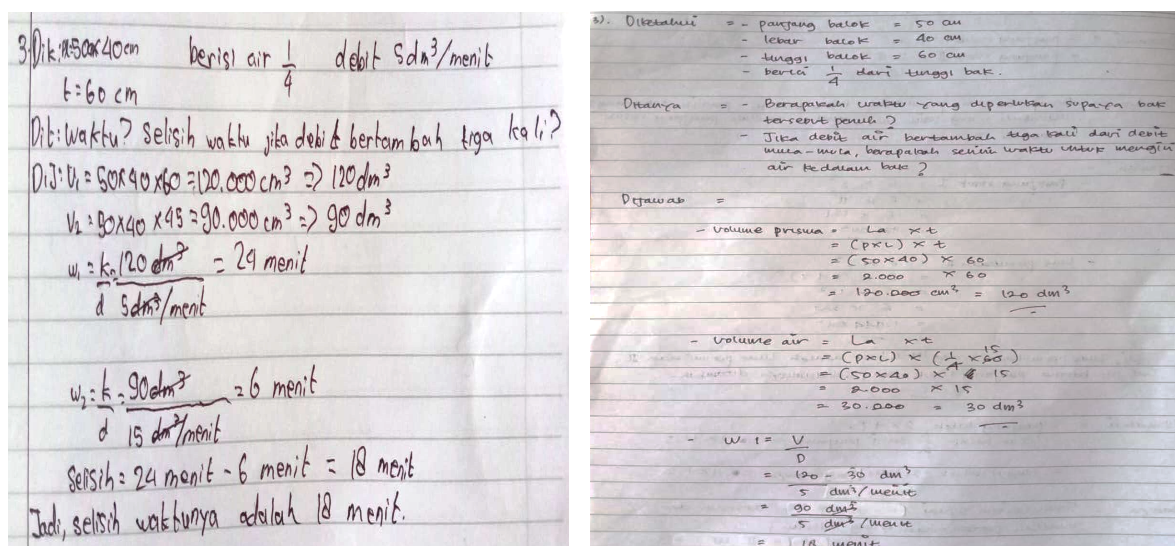 3. Dik: a=50x40cm berisi air 1/4 debit 5dm³/menit
t=60 cm
Dit: Waktu? Selisih waktu jika debit bertambah tiga kali?
DiJ: V₁ = 50x40x60 = 120.000 cm³ => 120 dm³
V₂ = 50x40x45 = 90.000 cm³ => 90 dm³
w₁ = k/d = 120 dm³ / 5 dm³/menit = 24 menit
w₂ = k/d = 90 dm³ / 15 dm³/menit = 6 menit
Selisih = 24 menit - 6 menit = 18 menit
Jadi, selisih waktunya adalah 18 menit.
3). Diketahui = - panjang balok = 50 cm
- lebar balok = 40 cm
- tinggi balok = 60 cm
- berisi 1/4 dari tinggi bak.
Ditanya = - Berapakah waktu yang diperlukan supaya bak
tersebut penuh ?
- Jika debit air bertambah tiga kali dari debit
mula-mula, berapakah selisih waktu untuk mengisi
air kedalam bak ?
Dijawab =
- volume prisma = La x t
= (PxL) x t
= (50x40) x 60
= 2.000 x 60
= 120.000 cm³ = 120 dm³
- volume air = La x t
= (PxL) x (1/4 x 60) 15
= (50x40) x 15
= 2.000 x 15
= 30.000 = 30 dm³
- W 1 = V/D
= 120 - 30 dm³ / 5 dm³/menit
= 90 dm³ / 5 dm³/menit
= 18 menit